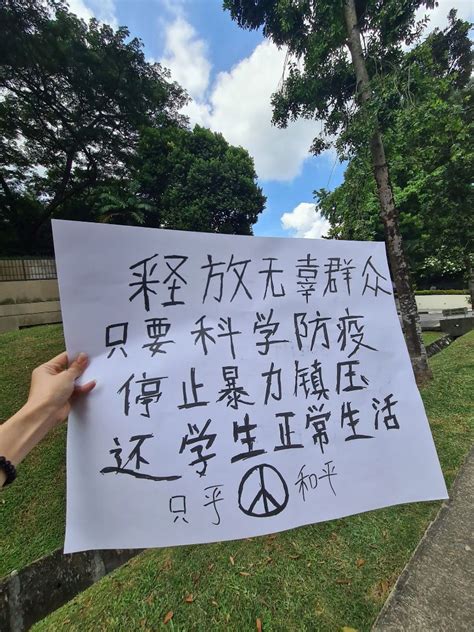 释放无辜群众
只要科学防疫
停止暴力镇压
还学生正常生活
只乎和乎